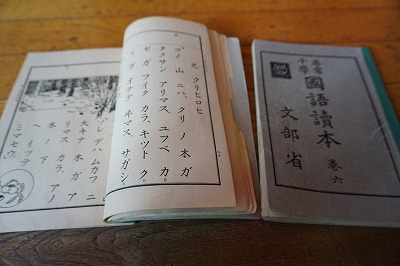 尋常
小學
國語讀本 卷六
文部省
九 クリヒロヒ
コノ 山 ニハ、クリ ノ 木 ガ
タクサン アリマス。ユフベ カ
ゼ ガ フイタ カラ、キツト ク
リ ガ オチテ ヰマス。サガシ
ムカフ ニ
大キナ 木 ガ ア
リマス カラ、アノ
木 ノ 下
ヘ イツテ
ミマセウ。